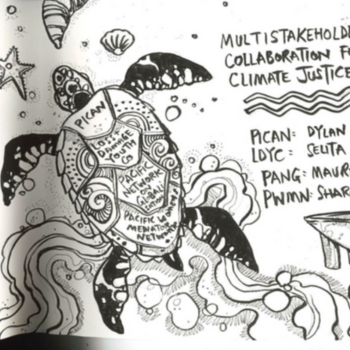 MULTISTAKEHOLD
COLLABORATION FO
CLIMATE JUSTICE
PICAN: DYLAN
LDYC: SELITA
PANG: MAUR
PWMN: SHAR
PICAN
LOSS &
DAMAGE
YOUTH
CO
PACIFIC
NETWORK
ON
GLOBAL
PACIFIC WOMEN
MEDIATORS
NETWORK